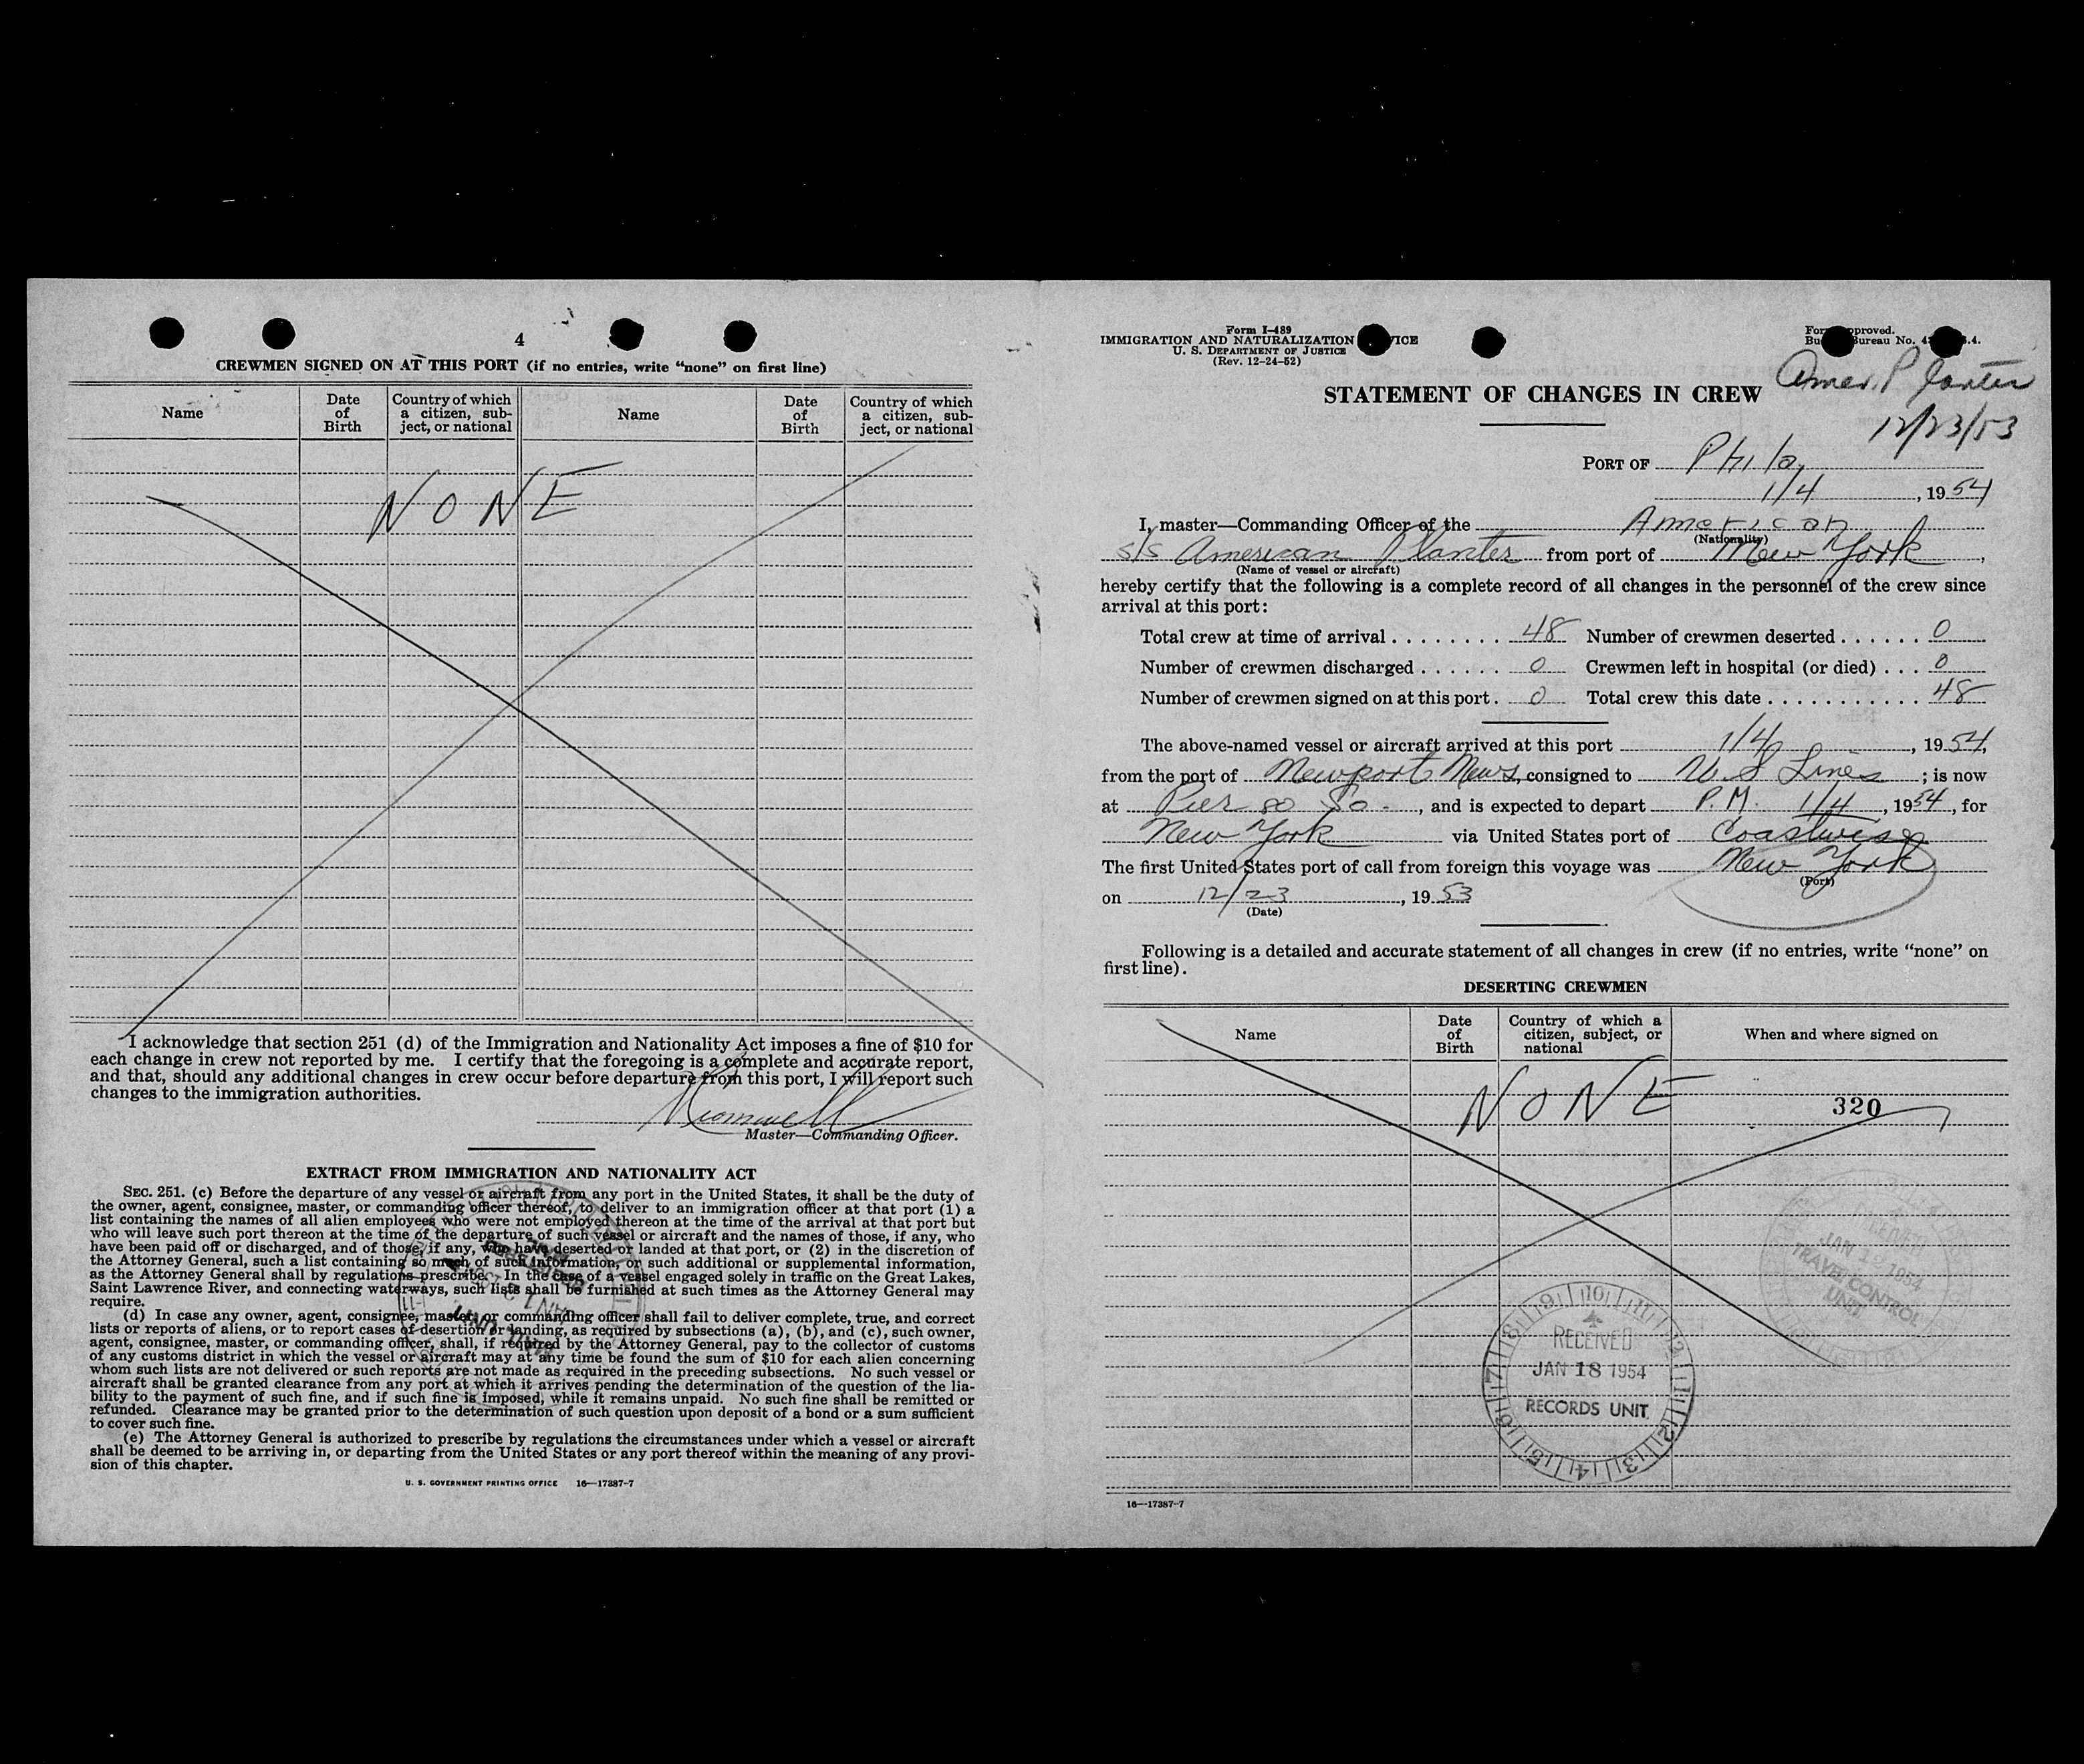 4
CREWMEN SIGNED ON AT THIS PORT (if no entries, write “none” on first line)
Name
Date of Birth
Country of which a citizen, subject, or national
Name
Date of Birth
Country of which a citizen, subject, or national
NONE
I acknowledge that section 251 (d) of the Immigration and Nationality Act imposes a fine of $10 for
each change in crew not reported by me. I certify that the foregoing is a complete and accurate report,
and that, should any additional changes in crew occur before departure from this port, I will report such
changes to the immigration authorities.
Master—Commanding Officer.
EXTRACT FROM IMMIGRATION AND NATIONALITY ACT
SEC. 251. (c) Before the departure of any vessel or aircraft from any port in the United States, it shall be the duty of
the owner, agent, consignee, master, or commanding officer thereof, to deliver to an immigration officer at that port (1) a
list containing the names of all alien employees who were not employed thereon at the time of the arrival at that port but
who will leave such port thereon at the time of the departure of such vessel or aircraft and the names of those, if any, who
have been paid off or discharged, and of those, if any, who have deserted or landed at that port, or (2) in the discretion of
the Attorney General, such a list containing so much of such information, or such additional or supplemental information,
as the Attorney General shall by regulations prescribe. In the case of a vessel engaged solely in traffic on the Great Lakes,
Saint Lawrence River, and connecting waterways, such lists shall be furnished at such times as the Attorney General may
require.
(d) In case any owner, agent, consignee, master, or commanding officer shall fail to deliver complete, true, and correct
lists or reports of aliens, or to report cases of desertion or landing, as required by subsections (a), (b), and (c), such owner,
agent, consignee, master, or commanding officer, shall, if required by the Attorney General, pay to the collector of customs
of any customs district in which the vessel or aircraft may at any time be found the sum of $10 for each alien concerning
whom such lists are not delivered or such reports are not made as required in the preceding subsections. No such vessel or
aircraft shall be granted clearance from any port at which it arrives pending the determination of the question of the lia-
bility to the payment of such fine, and if such fine is imposed, while it remains unpaid. No such fine shall be remitted or
refunded. Clearance may be granted prior to the determination of such question upon deposit of a bond or a sum sufficient
to cover such fine.
(e) The Attorney General is authorized to prescribe by regulations the circumstances under which a vessel or aircraft
shall be deemed to be arriving in, or departing from the United States or any port thereof within the meaning of any provi-
sion of this chapter.
U. S. GOVERNMENT PRINTING OFFICE 16—17387-7
Form I-489
IMMIGRATION AND NATURALIZATION
U. S. DEPARTMENT OF JUSTICE
(Rev. 12-24-52)
Amer. Planter
12/23/53
STATEMENT OF CHANGES IN CREW
PORT OF Phila,
1/4, 1954
I, master—Commanding Officer of the American
(Nationality)
s/s American Planter from port of New York,
(Name of vessel or aircraft)
hereby certify that the following is a complete record of all changes in the personnel of the crew since
arrival at this port:
Total crew at time of arrival . . . . . . . . 48 Number of crewmen deserted . . . . . . 0
Number of crewmen discharged . . . . . . 0 Crewmen left in hospital (or died) . . . 0
Number of crewmen signed on at this port . 0 Total crew this date . . . . . . . . . . . 48
The above-named vessel or aircraft arrived at this port 1/4, 1954,
from the port of Newport News, consigned to U.S Lines; is now
at Pier 80 So., and is expected to depart P.M. 1/4, 1954, for
New York via United States port of Coastwise
The first United States port of call from foreign this voyage was New York
(Port)
on 12/23, 1953
(Date)
Following is a detailed and accurate statement of all changes in crew (if no entries, write “none” on
first line).
DESERTING CREWMEN
Name
Date of Birth
Country of which a citizen, subject, or national
When and where signed on
NONE
320
JAN 1954
TRAVEL CONTROL
UNIT
RECEIVED
JAN 18 1954
RECORDS UNIT
16—17387-7